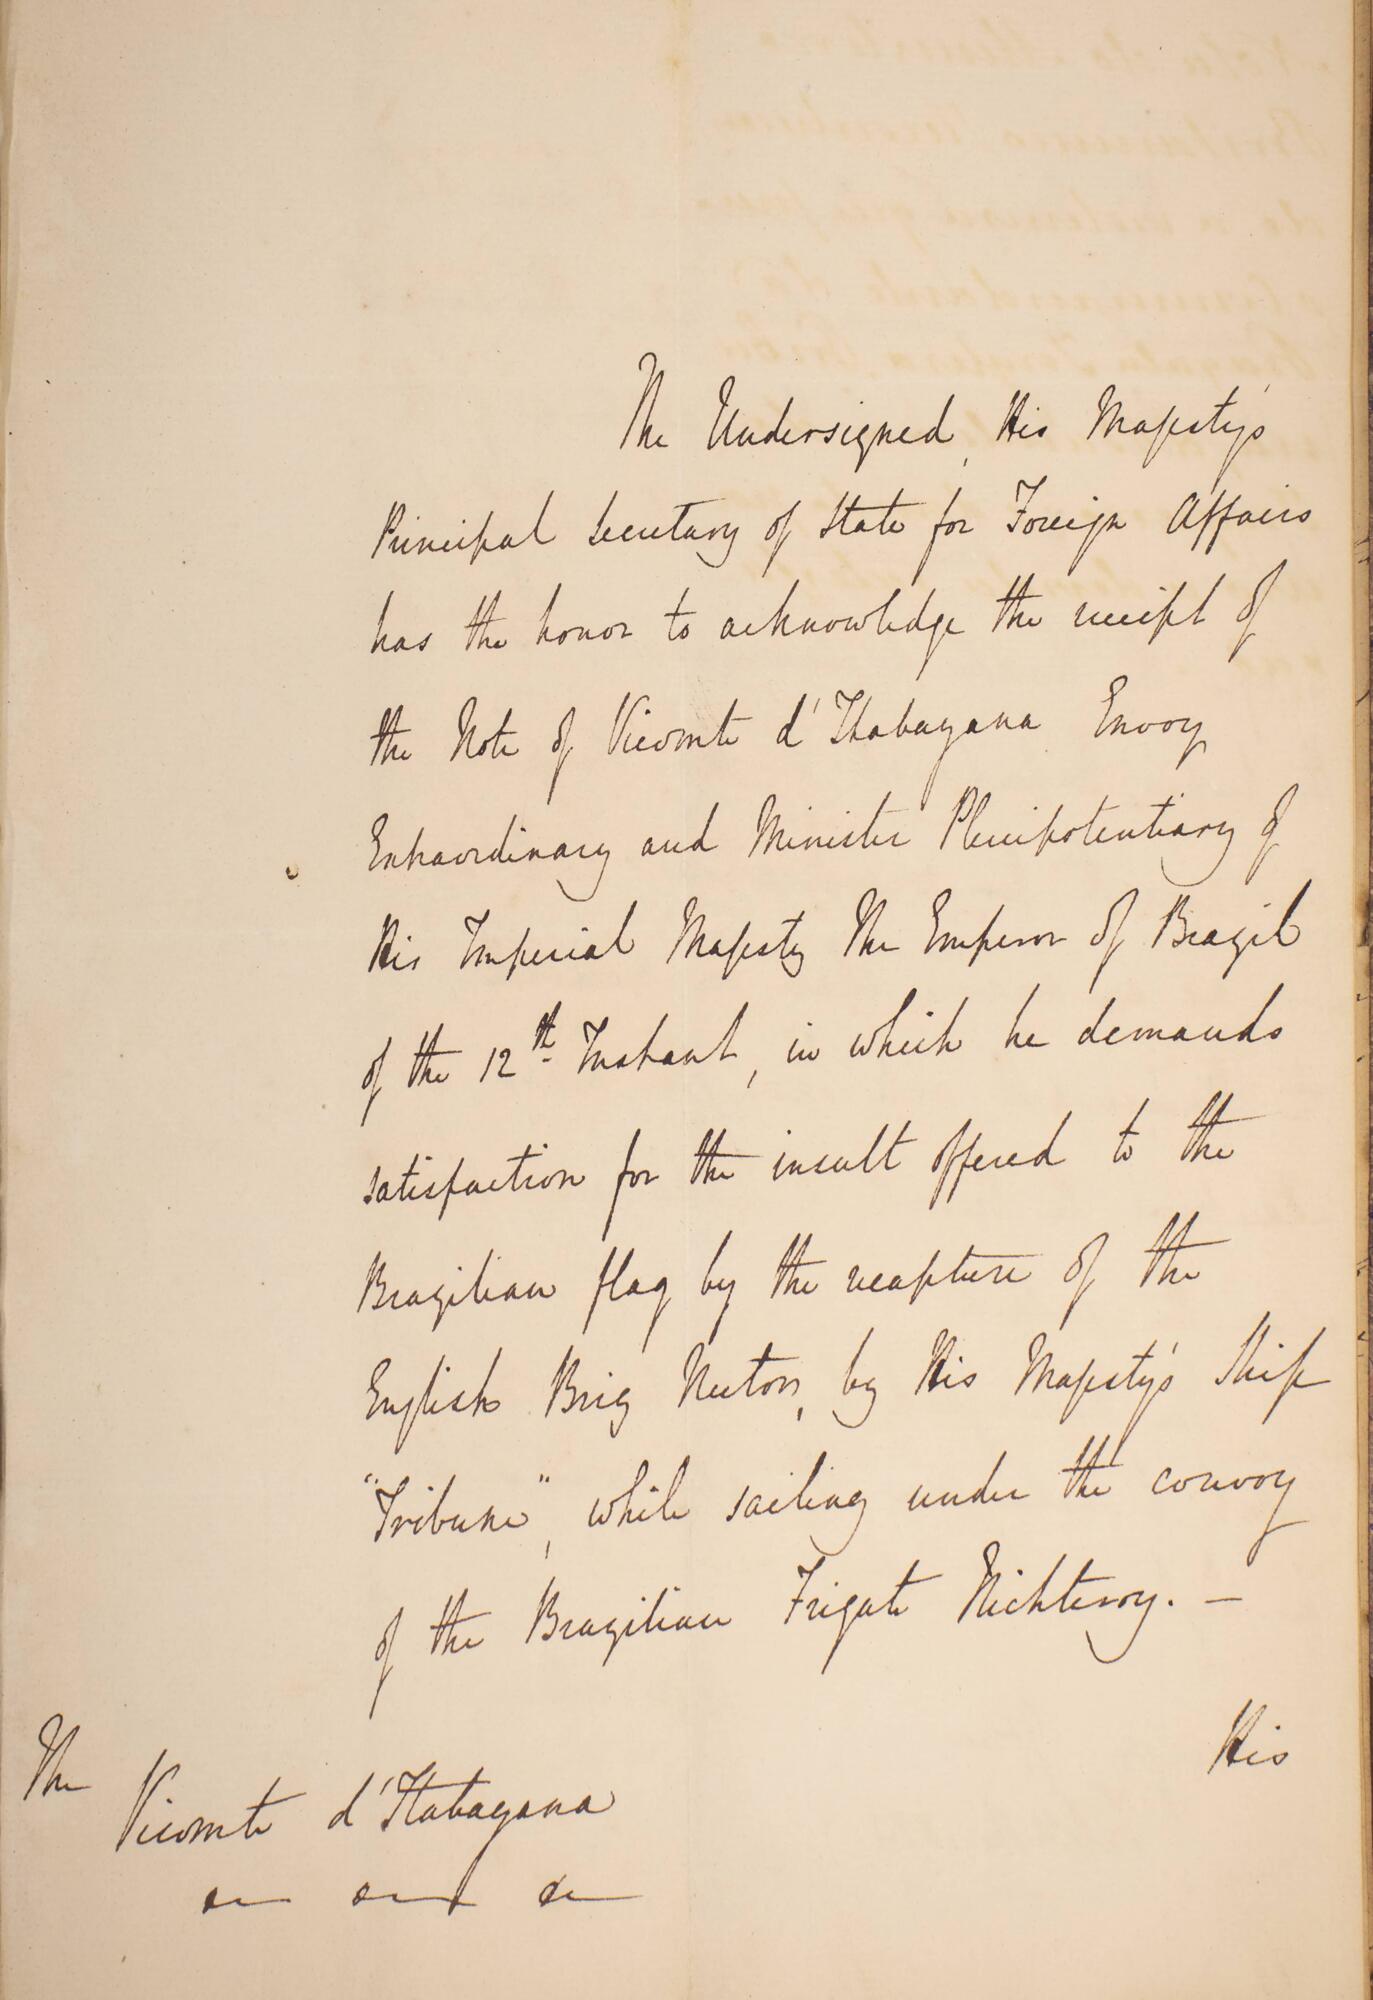 The Undersigned, His Majesty's
Principal Secretary of State for Foreign Affairs
has the honor to acknowledge the receipt of
the Note of Vicomte d'Itabayana Envoy
Extraordinary and Minister Plenipotentiary of
His Imperial Majesty The Emperor of Brazil
of the 12th Instant, in which he demands
satisfaction for the insult offered to the
Brazilian flag by the recapture of the
English Brig Nuton, by His Majesty's Ship
"Tribune", while sailing under the convoy
of the Brazilian Frigate Nichteroy. —
His
The
Vicomte d'Itabayana